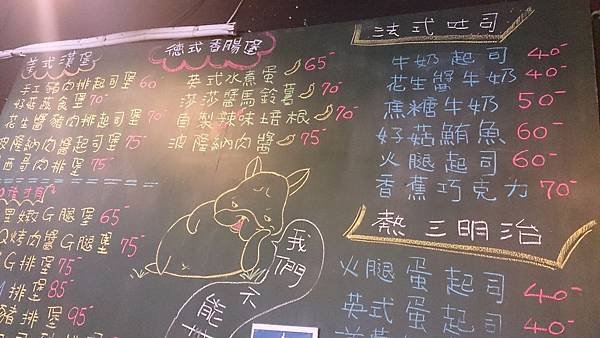 美式漢堡
手工豬肉排起司堡 60
好菇蔬食堡 70-
花生醬豬肉排起司堡 70-
波隆納肉醬起司堡 75-
西哥肉排堡 75-
嫩G腿堡 65-
Q烤肉醬G腿堡 75-
G排堡 75-
排堡 85-
豬排堡 95-
德式香腸堡
英式水煮蛋 65-
莎莎醬馬鈴薯 70-
自製辣味培根 70-
波隆納肉醬 75-
我們
不
能
法式吐司
牛奶起司 40-
花生醬牛奶 40-
焦糖牛奶 50-
好菇鮪魚 60-
火腿起司 60-
香蕉巧克力 70-
熱三明治
火腿蛋起司 40-
英式蛋起司 40-